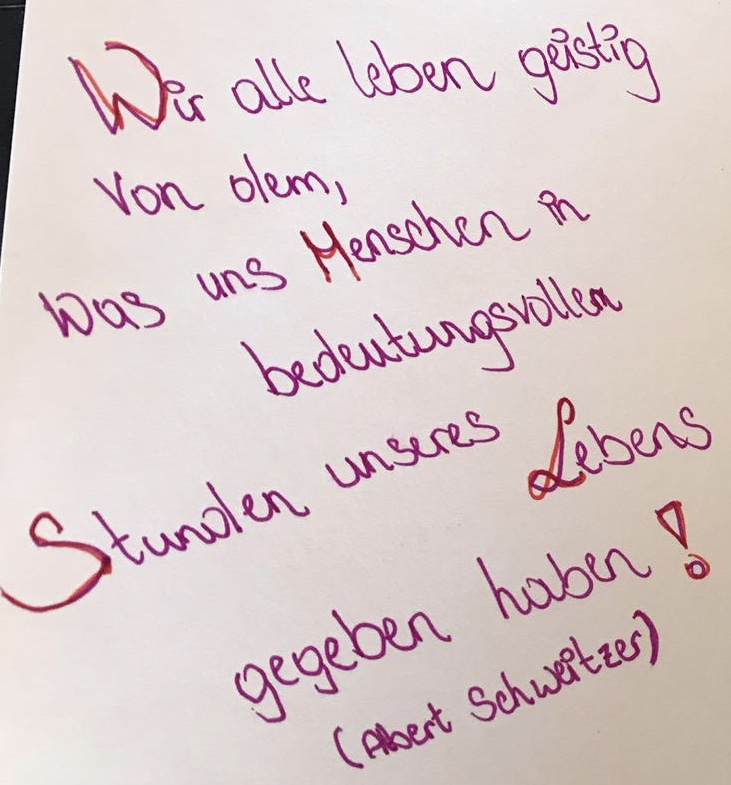 Wir alle leben geistig
von dem,
was uns Menschen in
bedeutungsvollen
Stunden unseres Lebens
gegeben haben!
(Albert Schweitzer)